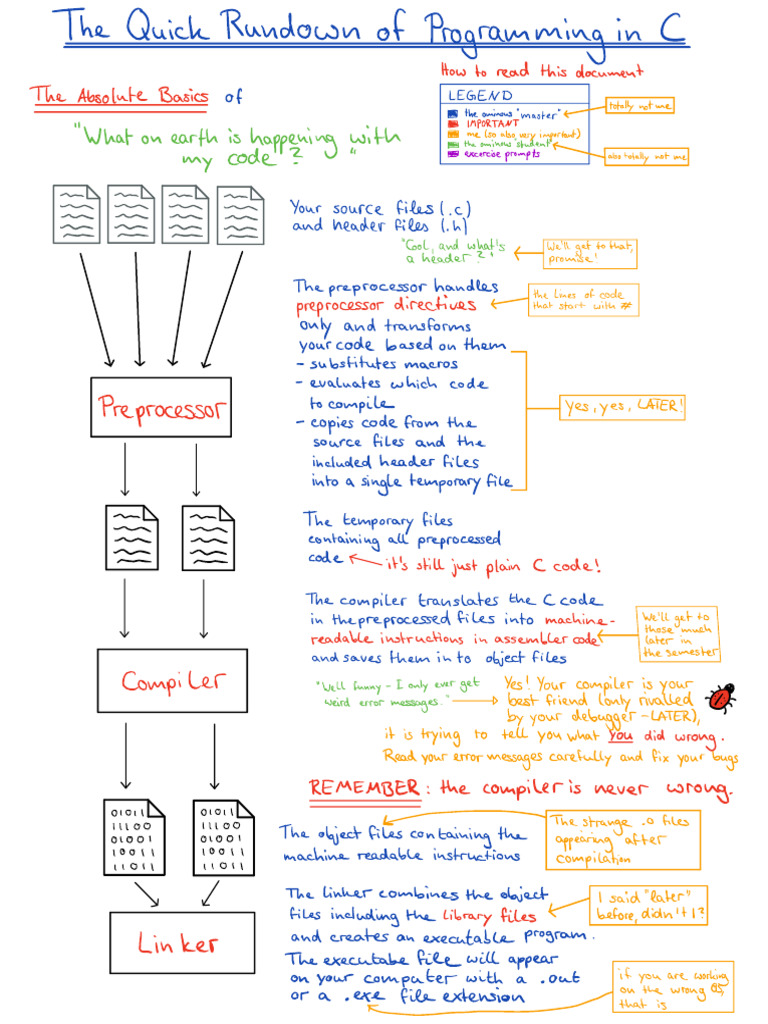 The Quick Rundown of Programming in C
How to read this document
LEGEND
the ominous "master"
totally not me
IMPORTANT
me (so also very important)
the ominous student
absotally not me
excercise prompts
The Absolute Basics of
"What on earth is happening with
my code? "
Your source files (.c)
and header files (.h)
"Cool, and what's
a header?"
We'll get to that,
promise!
The preprocessor handles
preprocessor directives
the lines of code
that start with #
only and transforms
your code based on them
- substitutes macros
- evaluates which code
to compile
- copies code from the
source files and the
included header files
into a single temporary file
Yes, yes, LATER!
Preprocessor
The temporary files
containing all preprocessed
code
it's still just plain C code!
The compiler translates the C code
in the preprocessed files into machine-
readable instructions in assembler code
and saves them in to object files
We'll get to
those much
later in
the semester
Compiler
"Well funny - I only ever get
weird error messages."
Yes! Your compiler is your
best friend (only rivalled
by your debugger - LATER),
it is trying to tell you what you did wrong.
Read your error messages carefully and fix your bugs
REMEMBER: the compiler is never wrong.
01011
11100
01001
00110
0101
11001
00101
01110
The object files containing the
machine readable instructions
The strange .o files
appearing after
compilation
The linker combines the object
files including the library files
and creates an executable program.
I said "later"
before, didn't I?
Linker
The executabe file will appear
on your computer with a .out
or a .exe file extension
if you are working
on the wrong OS,
that is